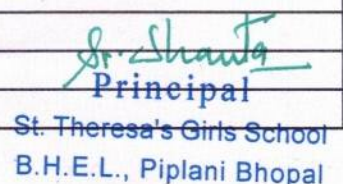 Sr. Shanta
Principal
St. Theresa's Girls School
B.H.E.L., Piplani Bhopal